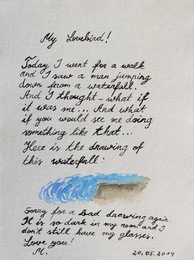 My Lovebird!
Today I went for a walk
and I saw a man jumping
down from a waterfall.
And I thought - what if
it was me... And what
if you would see me doing
something like that...
Here is the drawing of
this waterfall:
Sorry for a bad drawing again.
It is so dark in my room and I
don't still have my glasses.
Love you!
M.
20.05.2014